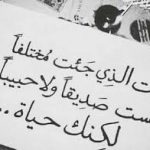 الذِي جَئت مُختلفاً
لست صَدِيقاً ولا حبيباً
لكِنك حياة ..